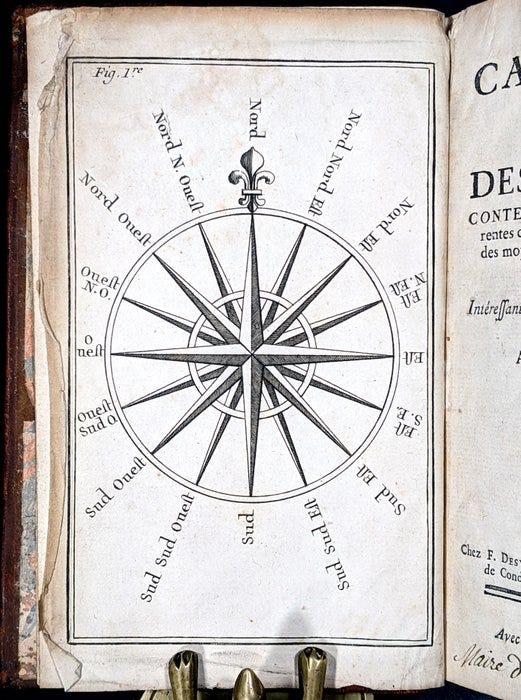 Fig. 1.re
Nord
Nord Nord Eſt
Nord Eſt
Eſt
N. Eſt
Eſt
Eſt
S. E.
Sud Eſt
Sud Sud Eſt
Sud
Sud Sud Oueſt
Sud Oueſt
Oueſt
Sud O.
O
ueſt
Oueſt
N.O.
Nord Oueſt
Nord N. Oueſt
CA
DES
CONTE
rentes
des mo
Intéreſſant
A
Chez F. DES
de Cond
Avec
Maire